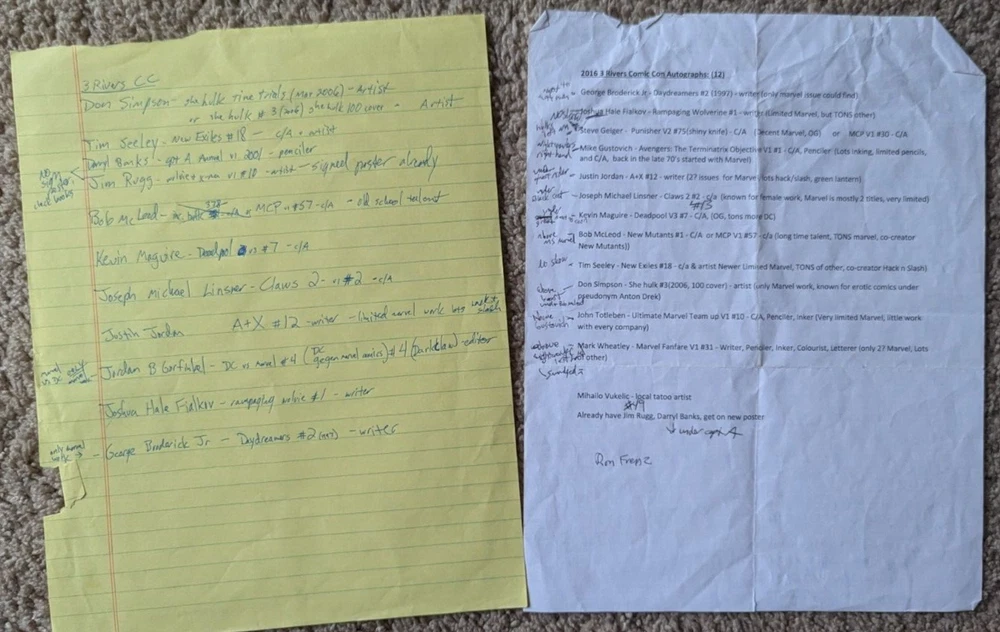 3 Rivers CC
Don Simpson - she hulk Time Trials (Mar 2006) - Artist
or she hulk # 3 (2006) she hulk 100 cover - Artist
Tim Seeley - New Exiles #18 - c/A - artist
Darryl Banks - Cpt A Annual v1 2001 - penciler
Jim Rugg - wolvie + x-men v1 #10 - artist - signed poster already
NO
Bob McLeod - MCP v1 #57 - c/A - old school talent
Kevin Maguire - Deadpool v3 #7 - c/A
Joseph Michael Linsner - Claws 2 - v1 #2 - c/A
Justin Jordan A+X #12 - writer - limited marvel work
Jordan B Gorfinkel - DC vs marvel #4 (DC marvel comics) #4 - editor
Joshua Hale Fialkov - rampaging wolvie #1 - writer
only marvel work → - George Broderick Jr - Daydreamers #2 (1997) - writer
2016 3 Rivers Comic Con Autographs: (12)
George Broderick Jr - Daydreamers #2 (1997) - writer (only marvel issue could find)
Joshua Hale Fialkov - Rampaging Wolverine #1 - writer (limited Marvel, but TONS other)
Steve Geiger - Punisher V2 #75(shiny knife) - C/A (Decent Marvel, OG) or MCP V1 #30 - C/A
Mike Gustovich - Avengers: The Terminatrix Objective V1 #1 - C/A, Penciler (Lots inking, limited pencils,
and C/A, back in the late 70's started with Marvel)
Justin Jordan - A+X #12 - writer (2? issues for Marvel lots hack/slash, green lantern)
Joseph Michael Linsner - Claws 2 #2 - c/a (known for female work, Marvel is mostly 2 titles, very limited)
Kevin Maguire - Deadpool V3 #7 - C/A, (OG, tons more DC)
Bob McLeod - New Mutants #1 - C/A or MCP V1 #57 - c/a (long time talent, TONS marvel, co-creator
New Mutants))
Tim Seeley - New Exiles #18 - c/a & artist Newer Limited Marvel, TONS of other, co-creator Hack n Slash)
Don Simpson - She hulk #3(2006, 100 cover) - artist (only Marvel work, known for erotic comics under
pseudonym Anton Drek)
John Totleben - Ultimate Marvel Team up V1 #10 - C/A, Penciler, Inker (Very limited Marvel, little work
with every company)
Mark Wheatley - Marvel Fanfare V1 #31 - Writer, Penciler, Inker, Colourist, Letterer (only 2? Marvel, Lots
other)
Mihailo Vukelic - local tatoo artist
Already have Jim Rugg, Darryl Banks, get on new poster
under cap A
Ron Frenz